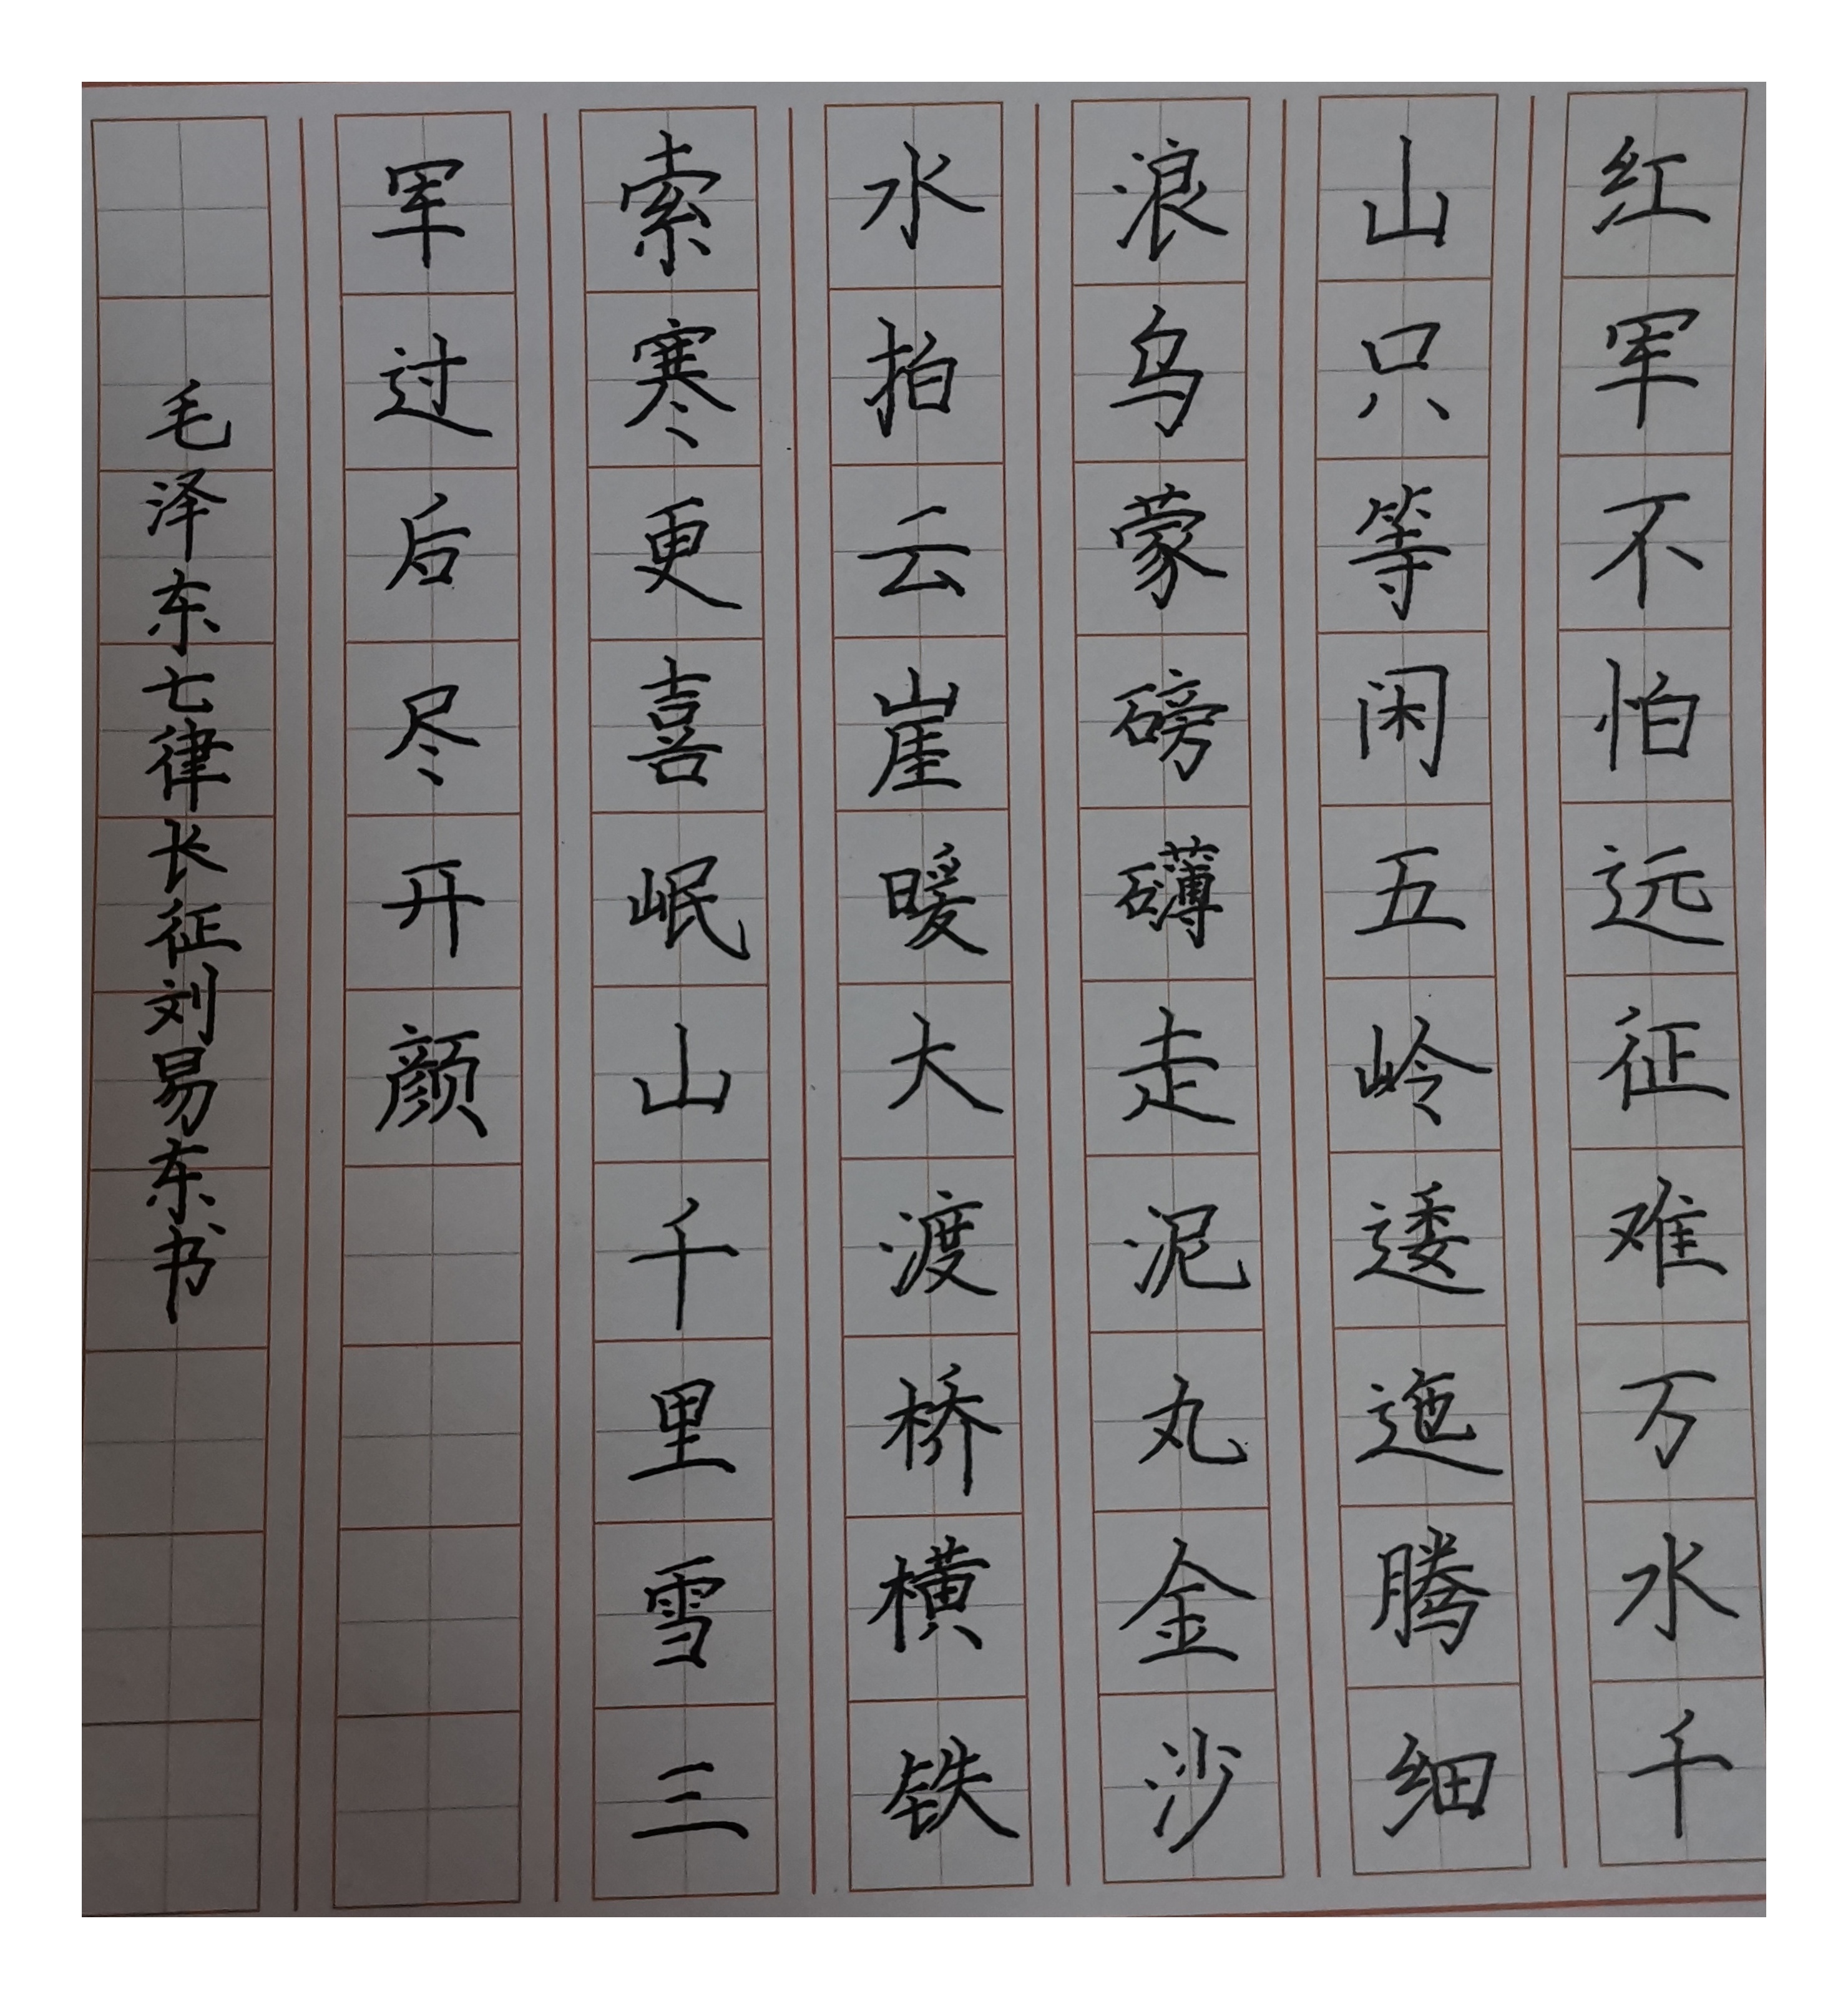 红军不怕远征难万水千
山只等闲五岭逶迤腾细
浪乌蒙磅礴走泥丸金沙
水拍云崖暖大渡桥横铁
索寒更喜岷山千里雪三
军过后尽开颜
毛泽东七律长征刘易东书